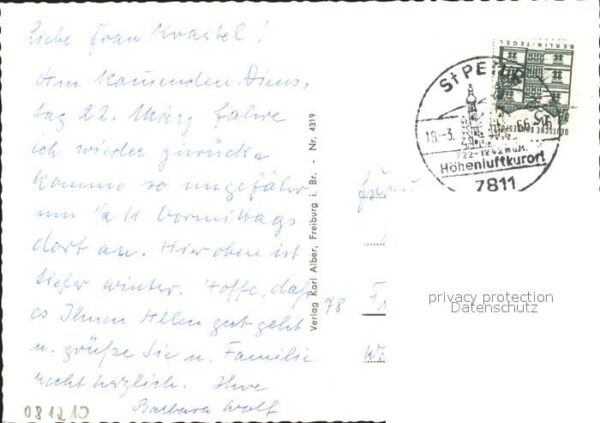 Liebe Frau Krastel!
Am Kommenden Diens,
tag 22. März fahre
ich wieder zurück
komme so ungefähr
um ½ 11 Vormittags
dort an. Hier oben ist
tiefer Winter. Hoffe, daß
es Ihnen Allen gut geht
u. grüße Sie u. Familie
recht herzlich. Ihre
Barbara Wolf
081210
Verlag Karl Alber, Freiburg i. Br. - Nr. 4319
BERLIN-TEGEL
DEUTSCHE BUNDESPOST
St PETER
18.-3.
66
722-1242 m ü.M.
Höhenluftkurort
7811
Frau
78 F
privacy protection
Datenschutz